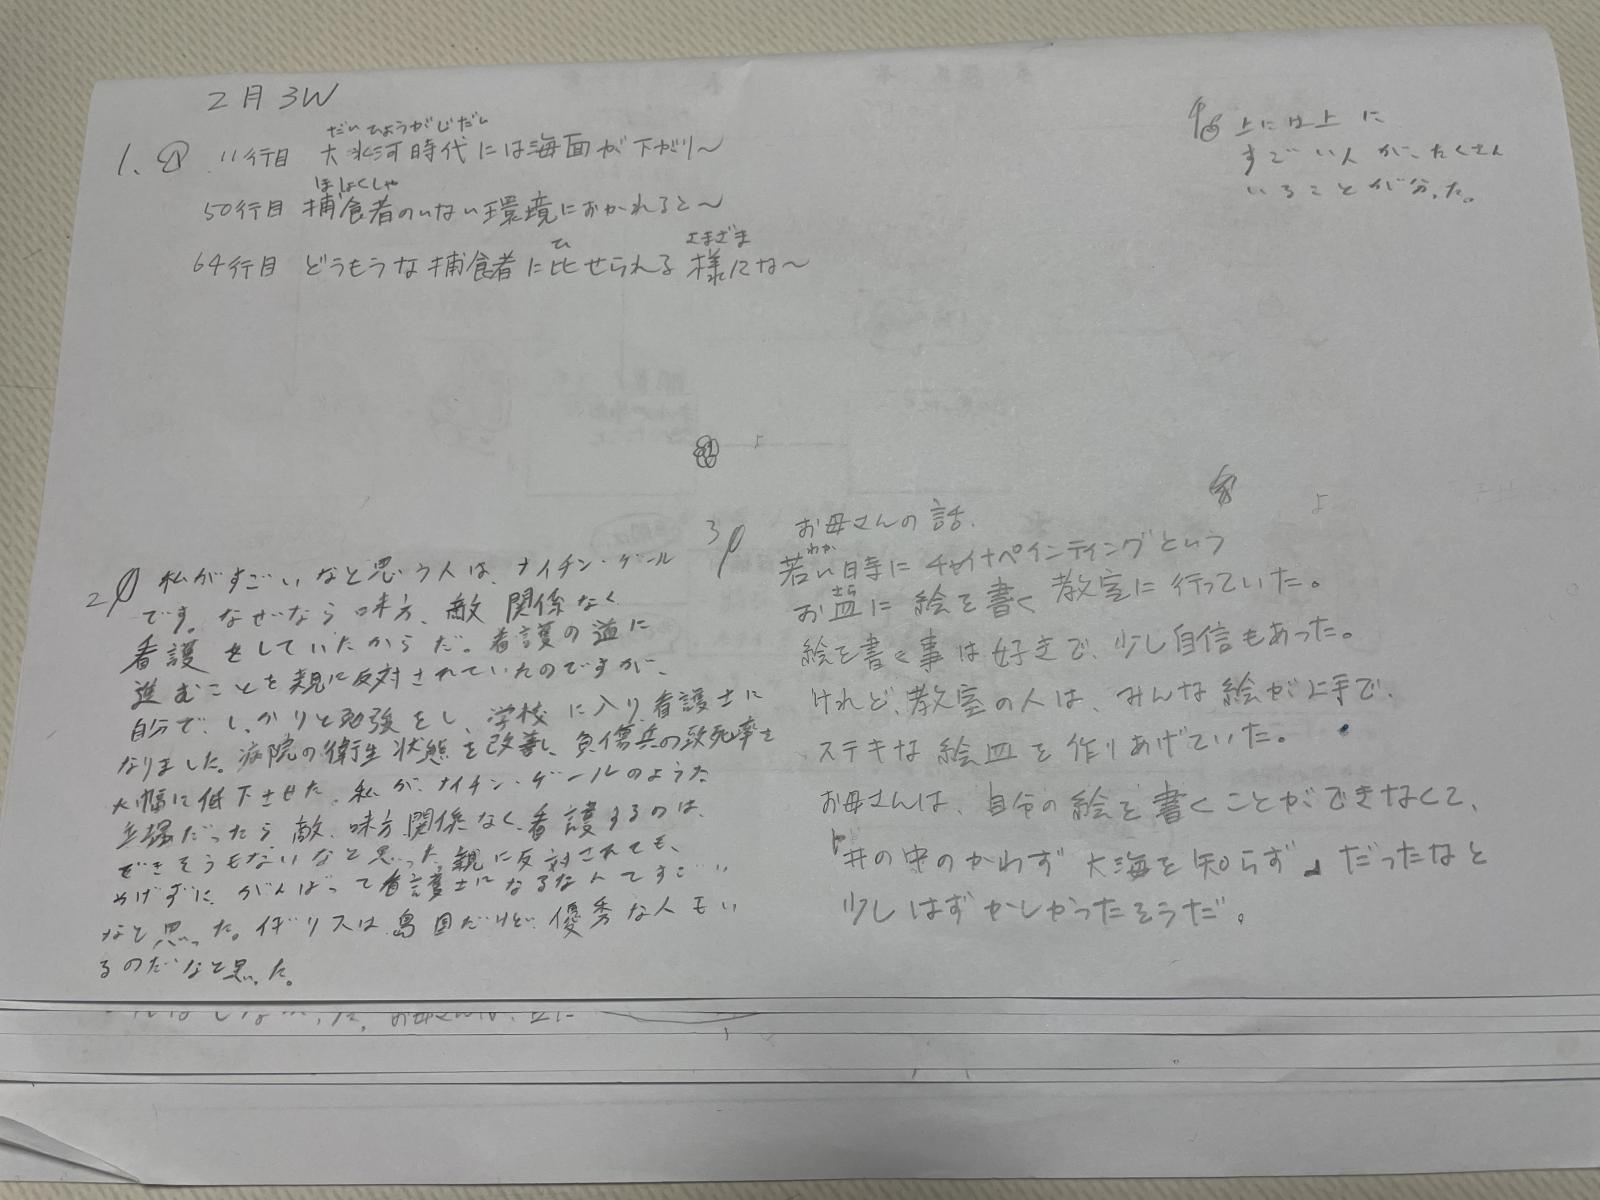 2月3W
だいひょうがじだい
1. 11行目 大氷河時代には海面が下がり〜
ほしょくしゃ
50行目 捕食者のいない環境におかれると〜
ひ さまざま
64行目 どうもうな捕食者に比せられる様にな〜
上には上に
すごい人が、たくさん
いることが分った。
2 私がすごいなと思う人は、ナイチン・ゲール
です。なぜなら味方、敵関係なく
看護をしていたからだ。看護の道に
進むことを親に反対されていたのですが、
自分で、しっかりと勉強をし、学校に入り看護士に
なりました。病院の衛生状態を改善し、負傷兵の致死率を
大幅に低下させた。私が、ナイチン・ゲールのような
立場だったら敵、味方関係なく、看護するのは、
できそうもないなと思った。親に反対されても、
めげずに、がんばって看護士になるなんてすごい
なと思った。イギリスは島国だけど、優秀な人もい
るのだなと思った。
3 お母さんの話。
わか
若い時にチャイナペインティングという
さら
お皿に絵を書く教室に行っていた。
絵を書く事は好きで、少し自信もあった。
けれど、教室の人は、みんな絵が上手で、
ステキな絵皿を作りあげていた。
お母さんは、自分の絵を書くことができなくて、
「井の中のかわず大海を知らず」だったなと
少しはずかしかったそうだ。
お母さんは、